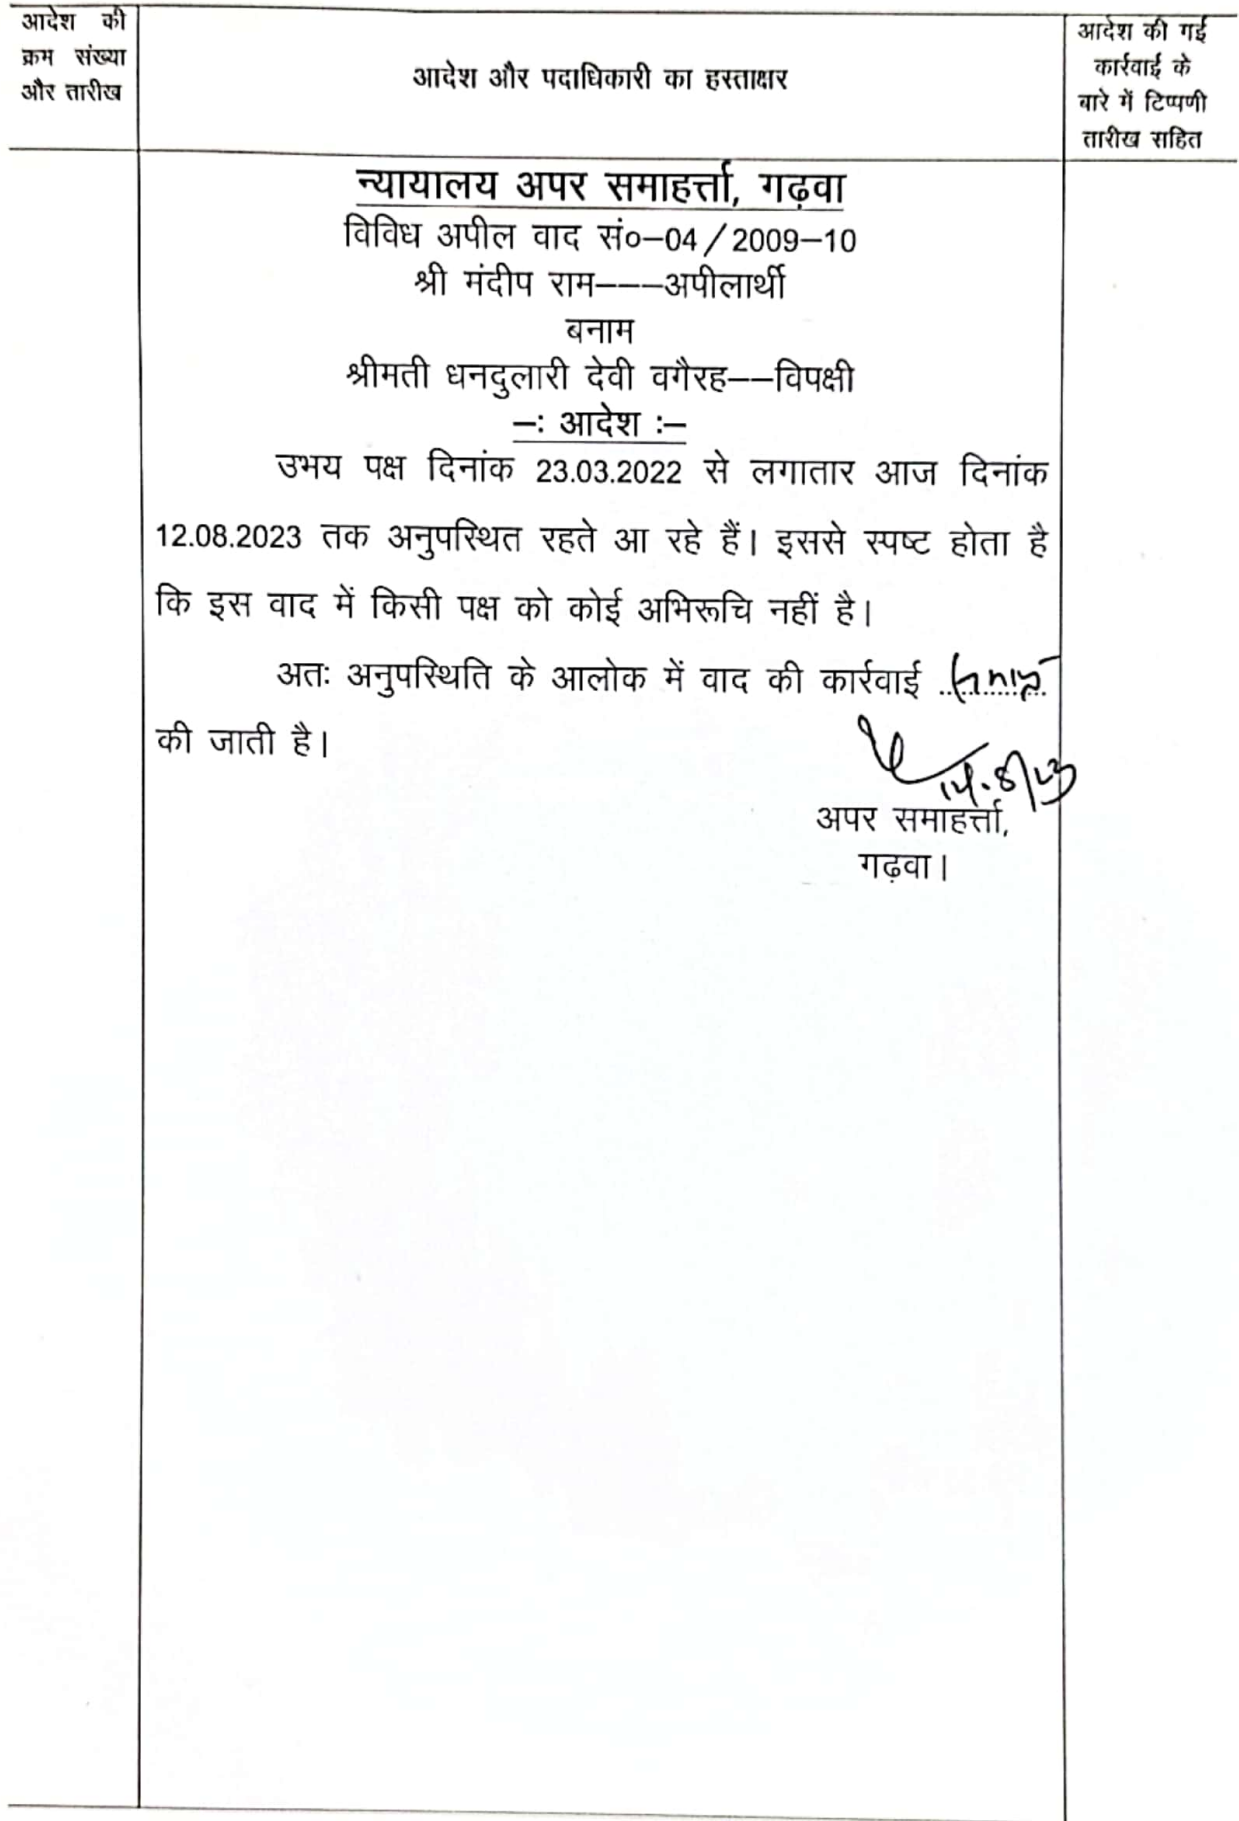 आदेश की
क्रम संख्या
और तारीख
आदेश और पदाधिकारी का हस्ताक्षर
आदेश की गई
कार्रवाई के
बारे में टिप्पणी
तारीख सहित
न्यायालय अपर समाहर्त्ता, गढ़वा
विविध अपील वाद सं०–04/2009–10
श्री मंदीप राम–––अपीलार्थी
बनाम
श्रीमती धनदुलारी देवी वगैरह––विपक्षी
–: आदेश :–
उभय पक्ष दिनांक 23.03.2022 से लगातार आज दिनांक
12.08.2023 तक अनुपस्थित रहते आ रहे हैं। इससे स्पष्ट होता है
कि इस वाद में किसी पक्ष को कोई अभिरूचि नहीं है।
अतः अनुपस्थिति के आलोक में वाद की कार्रवाई समाप्त
की जाती है।
14.8/23
अपर समाहर्त्ता,
गढ़वा।